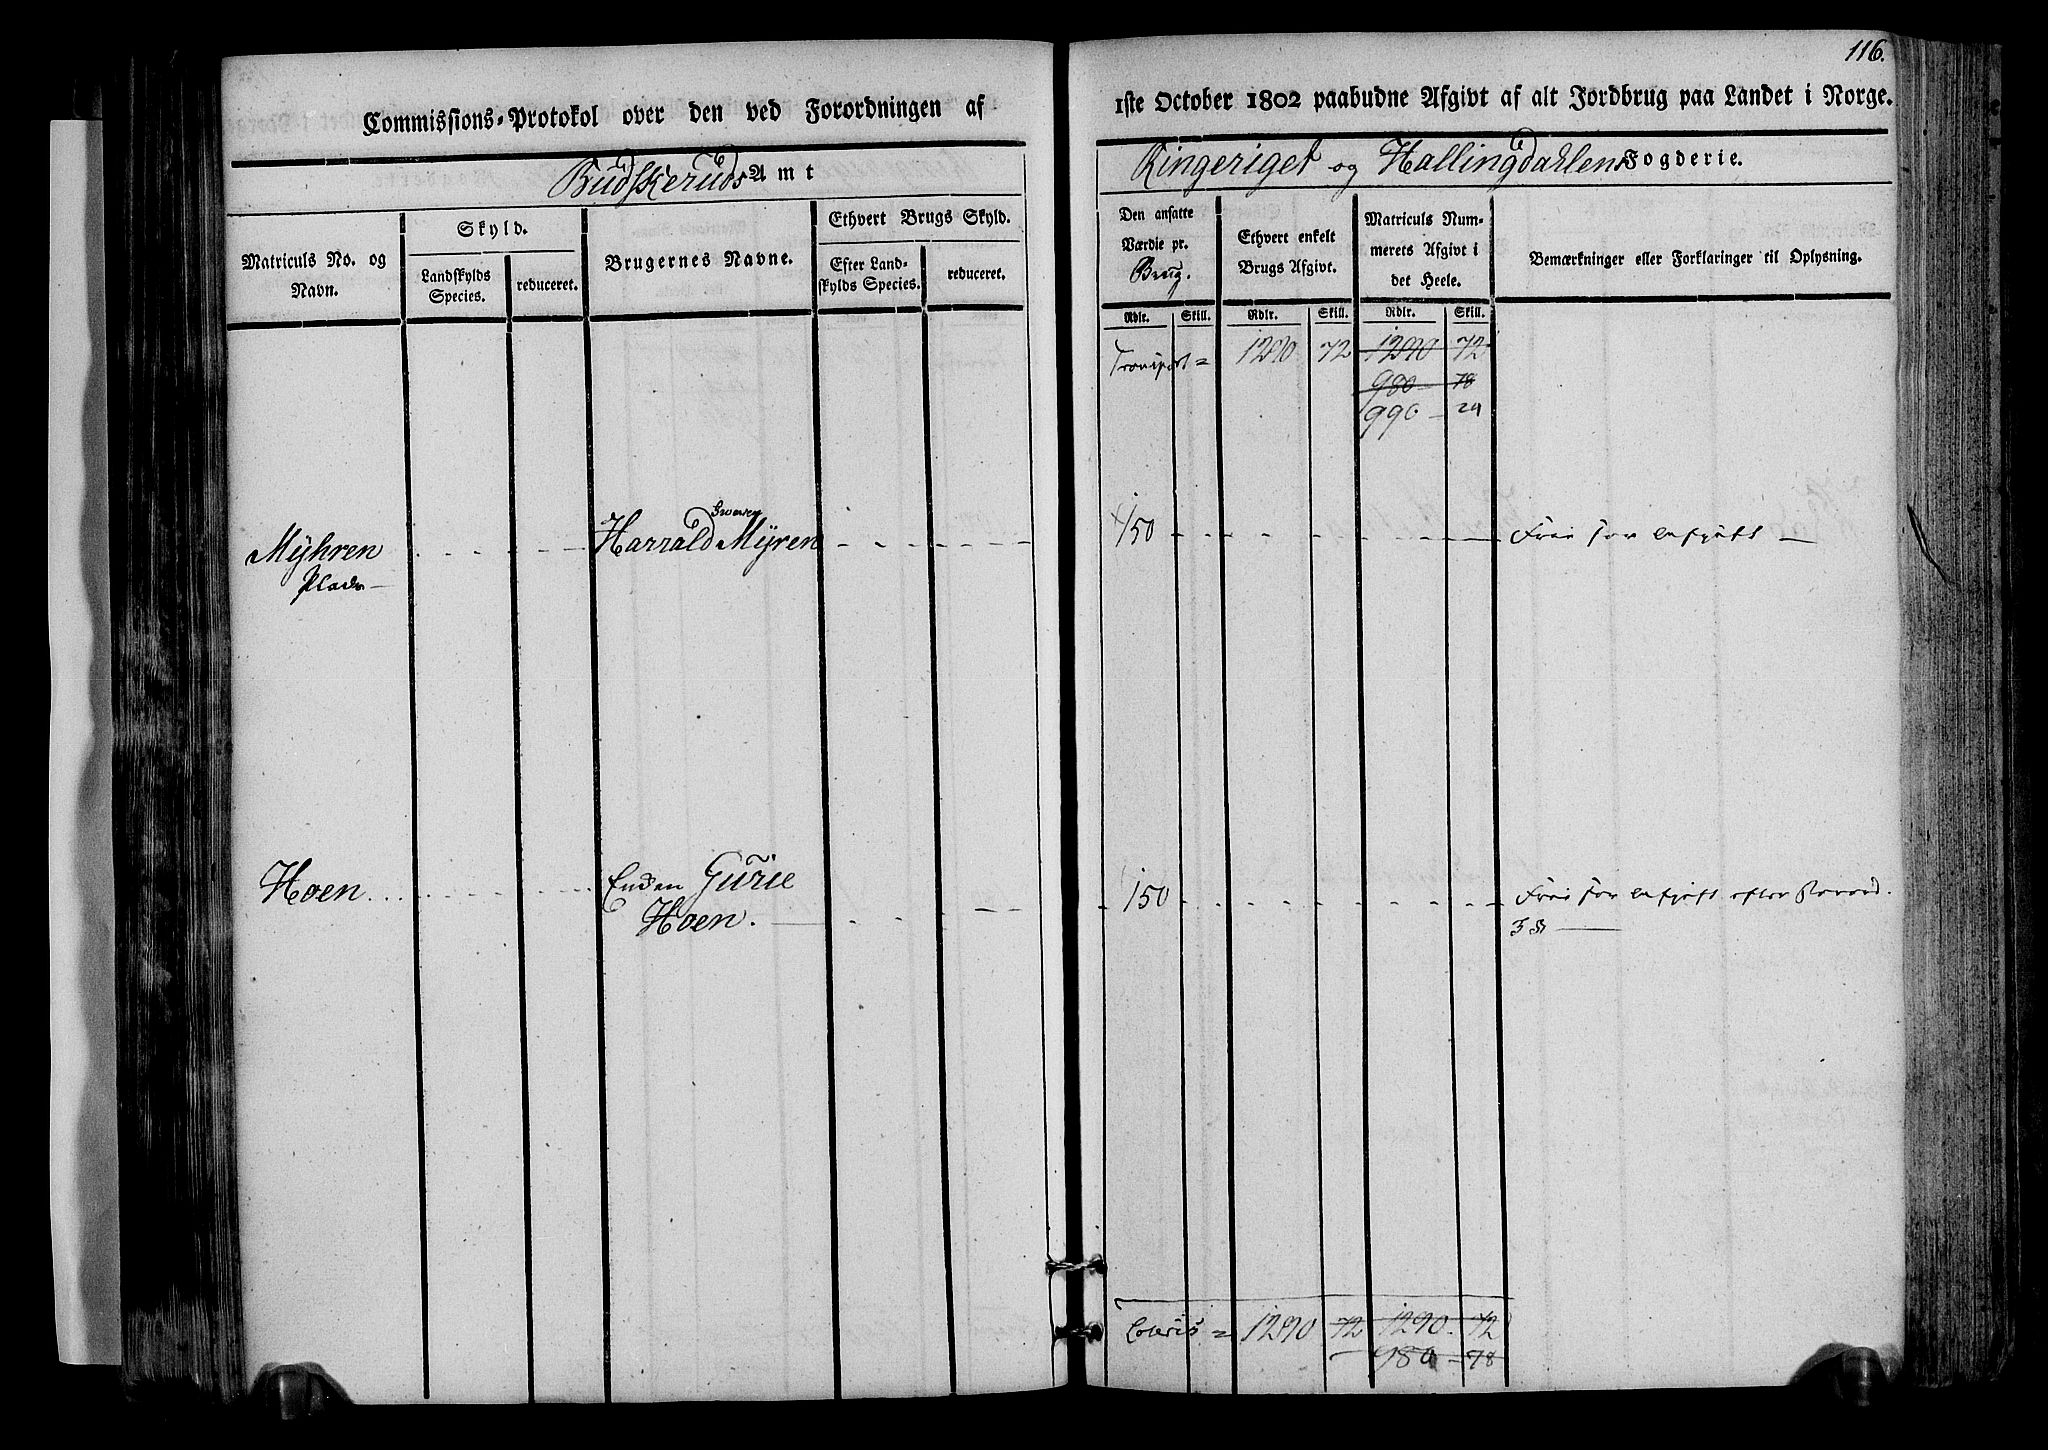 116.
Commissions-Protokol over den ved Forordningen af 1ste October 1802 paabudne Afgivt af alt Jordbrug paa Landet i Norge.
Budskeruds Amt
Ringeriget og Hallingdahlens Fogderie.
Matriculs No. og Navn.
Skyld.
Landskylds Species.
reduceret.
Brugernes Navne.
Ethvert Brugs Skyld.
Efter Landskylds Species.
reduceret.
Den ansatte Værdie pr. Brug.
Ethvert enkelt Brugs Afgivt.
Matriculs Nummerets Afgivt i det Heele.
Bemærkninger eller Forklaringer til Oplysning.
Rdlr. Skill. Rdlr. Skill. Rdlr. Skill.
Transport = 1290 72 1290 72
980 78
990 24
Myhren Harrald Myren 150 Frie for Afgift
Plads
Hoen Enken Gurie 150 Frie for Afgift efter Forord.
Hoen. 3 §
Lateris = 1290 72 1290. 72
980 78